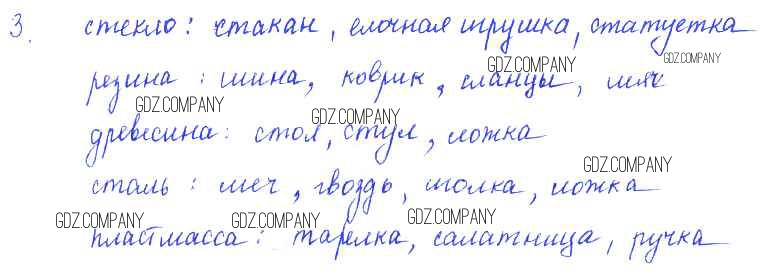 3. стекло: стакан, елочная игрушка, статуетка
GDZ.COMPANY GDZ.COMPANY
резина: шина, коврик, сланцы, мяч
GDZ.COMPANY GDZ.COMPANY
древесина: стол, стул, ложка
GDZ.COMPANY
сталь: меч, гвоздь, иголка, ложка
GDZ.COMPANY GDZ.COMPANY GDZ.COMPANY
пластмасса: тарелка, салатница, ручка